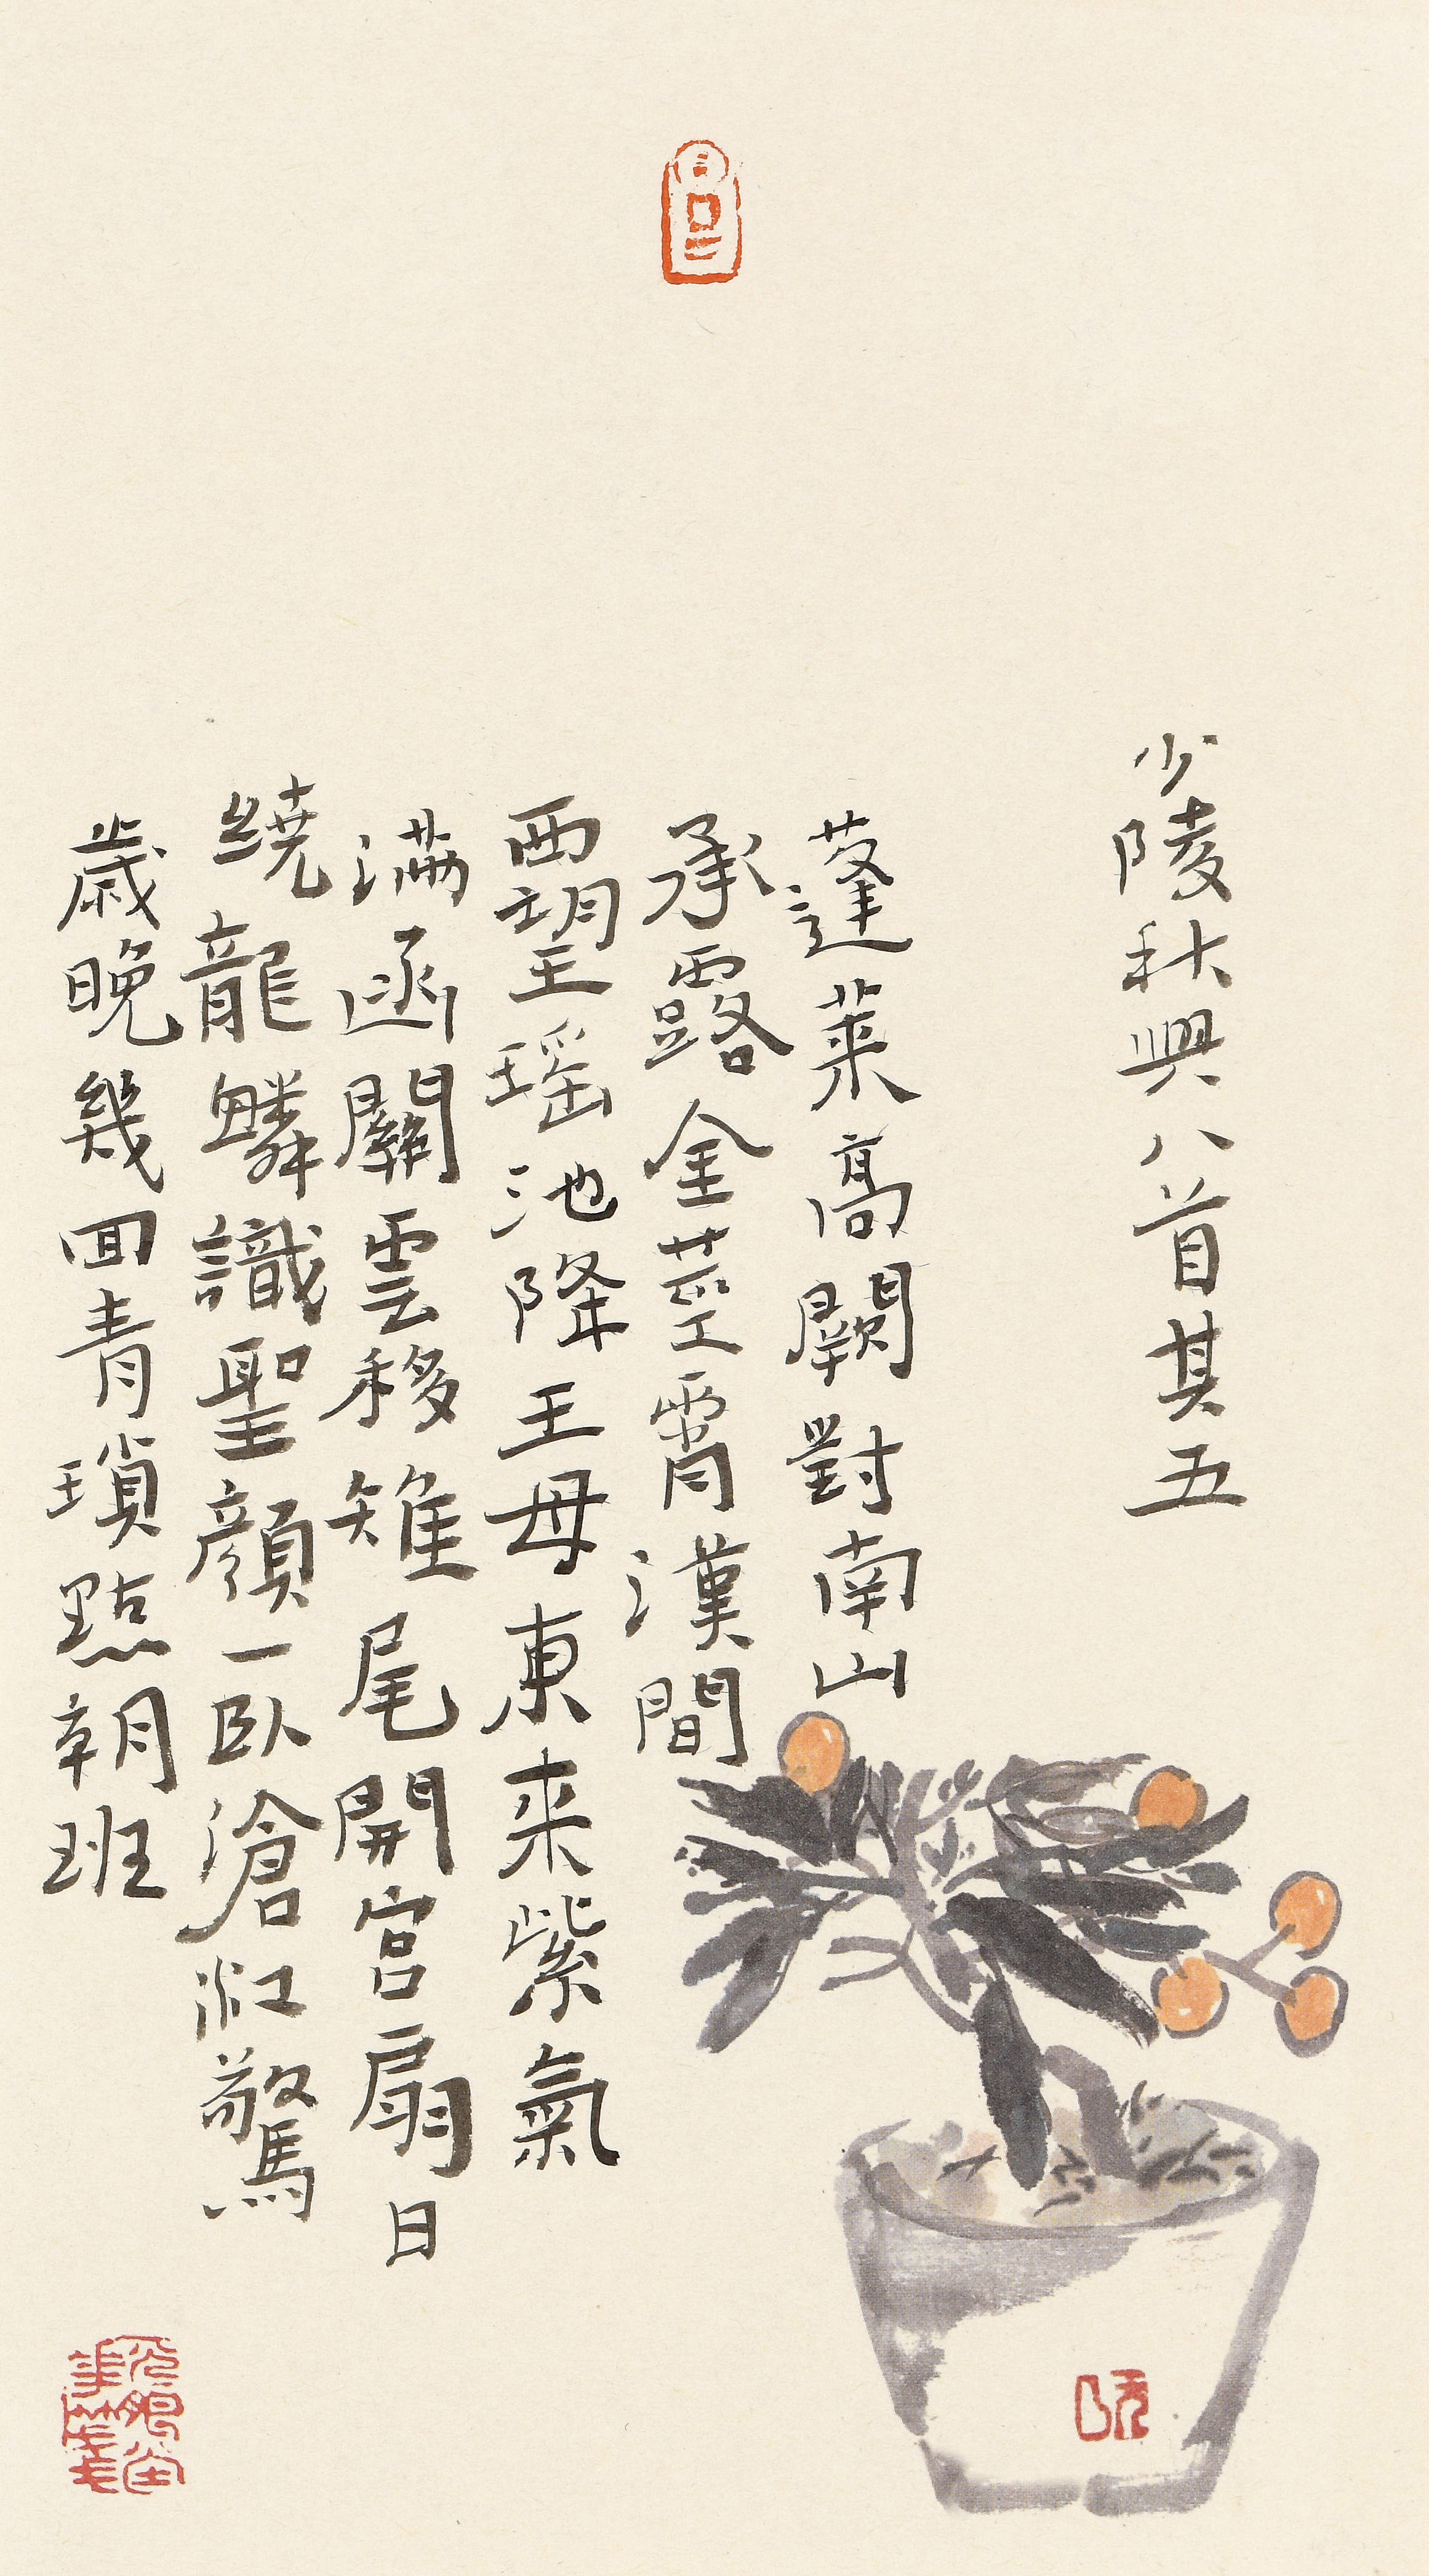 少陵秋興八首其五
蓬萊高闕對南山
承露金莖霄漢間
西望瑶池降王母東来紫氣
满函關雲移雉尾開宫扇日
繞龍鱗識聖顔一臥滄江驚
歲晚幾回青瑣點朝班